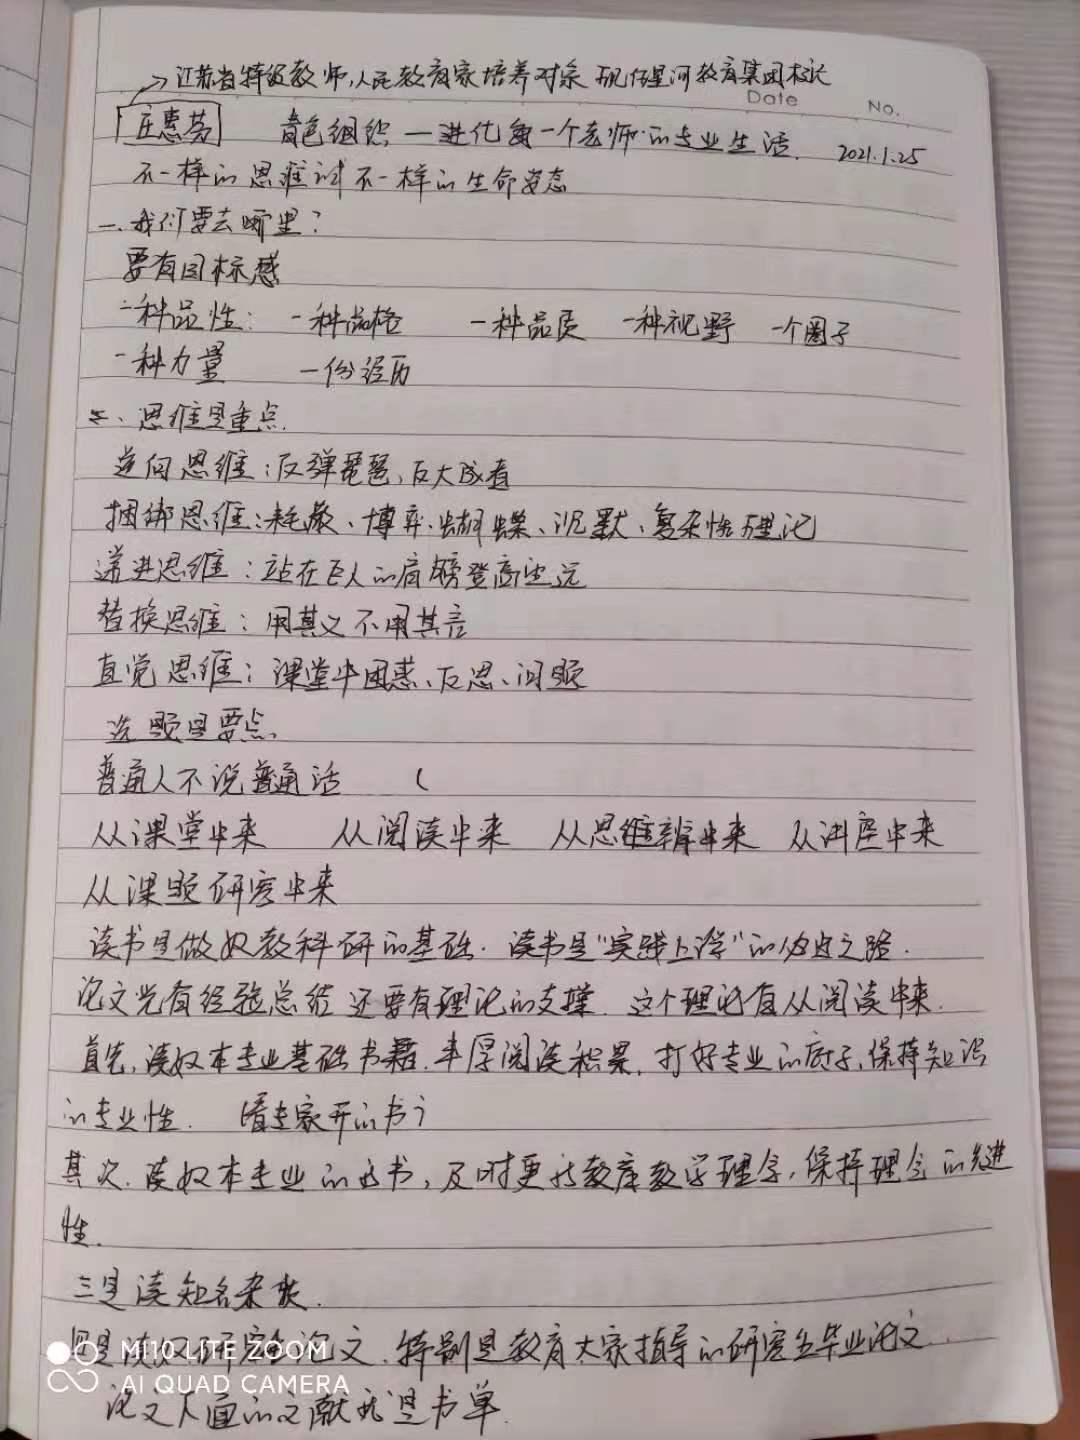 江苏省特级教师,人民教育家培养对象 现任星河教育集团校长
Date No.
庄惠芬 青色组织—进化每一个老师的专业生活. 2021.1.25
不一样的思维 不一样的生命姿态
一.我们要去哪里?
要有目标感
一种品性: 一种尚格 一种品质 一种视野 一个圈子
一种力量 一份经历
二、思维是重点.
逆向思维:反弹琵琶、反大成者
捆绑思维:耗散、博弈.蝴蝶、沉默、复杂性理论
递进思维:站在巨人的肩膀登高望远
替换思维:用其义不用其言
直觉思维:课堂中困惑、反思、问题
选题是要点.
普通人不说普通话 (
从课堂中来 从阅读中来 从思维辨中来 从讲座中来
从课题研究中来
读书是做好教科研的基础. 读书是“实践上学”的必由之路.
论文光有经验总结 还要有理论的支撑. 这个理论有从阅读中来.
首先,读好本专业基础书籍.丰厚阅读积累,打好专业的底子,保持知识
的专业性. (看专家开的书)
其次.读好本专业的新书,及时更新教库教学理念,保持理念的先进
性.
三是读知名杂志.
四是读好研究生论文.特别是教育大家指导的研究生毕业论文
MI 10 LITE ZOOM
AI QUAD CAMERA
论文下面的文献就是书单.